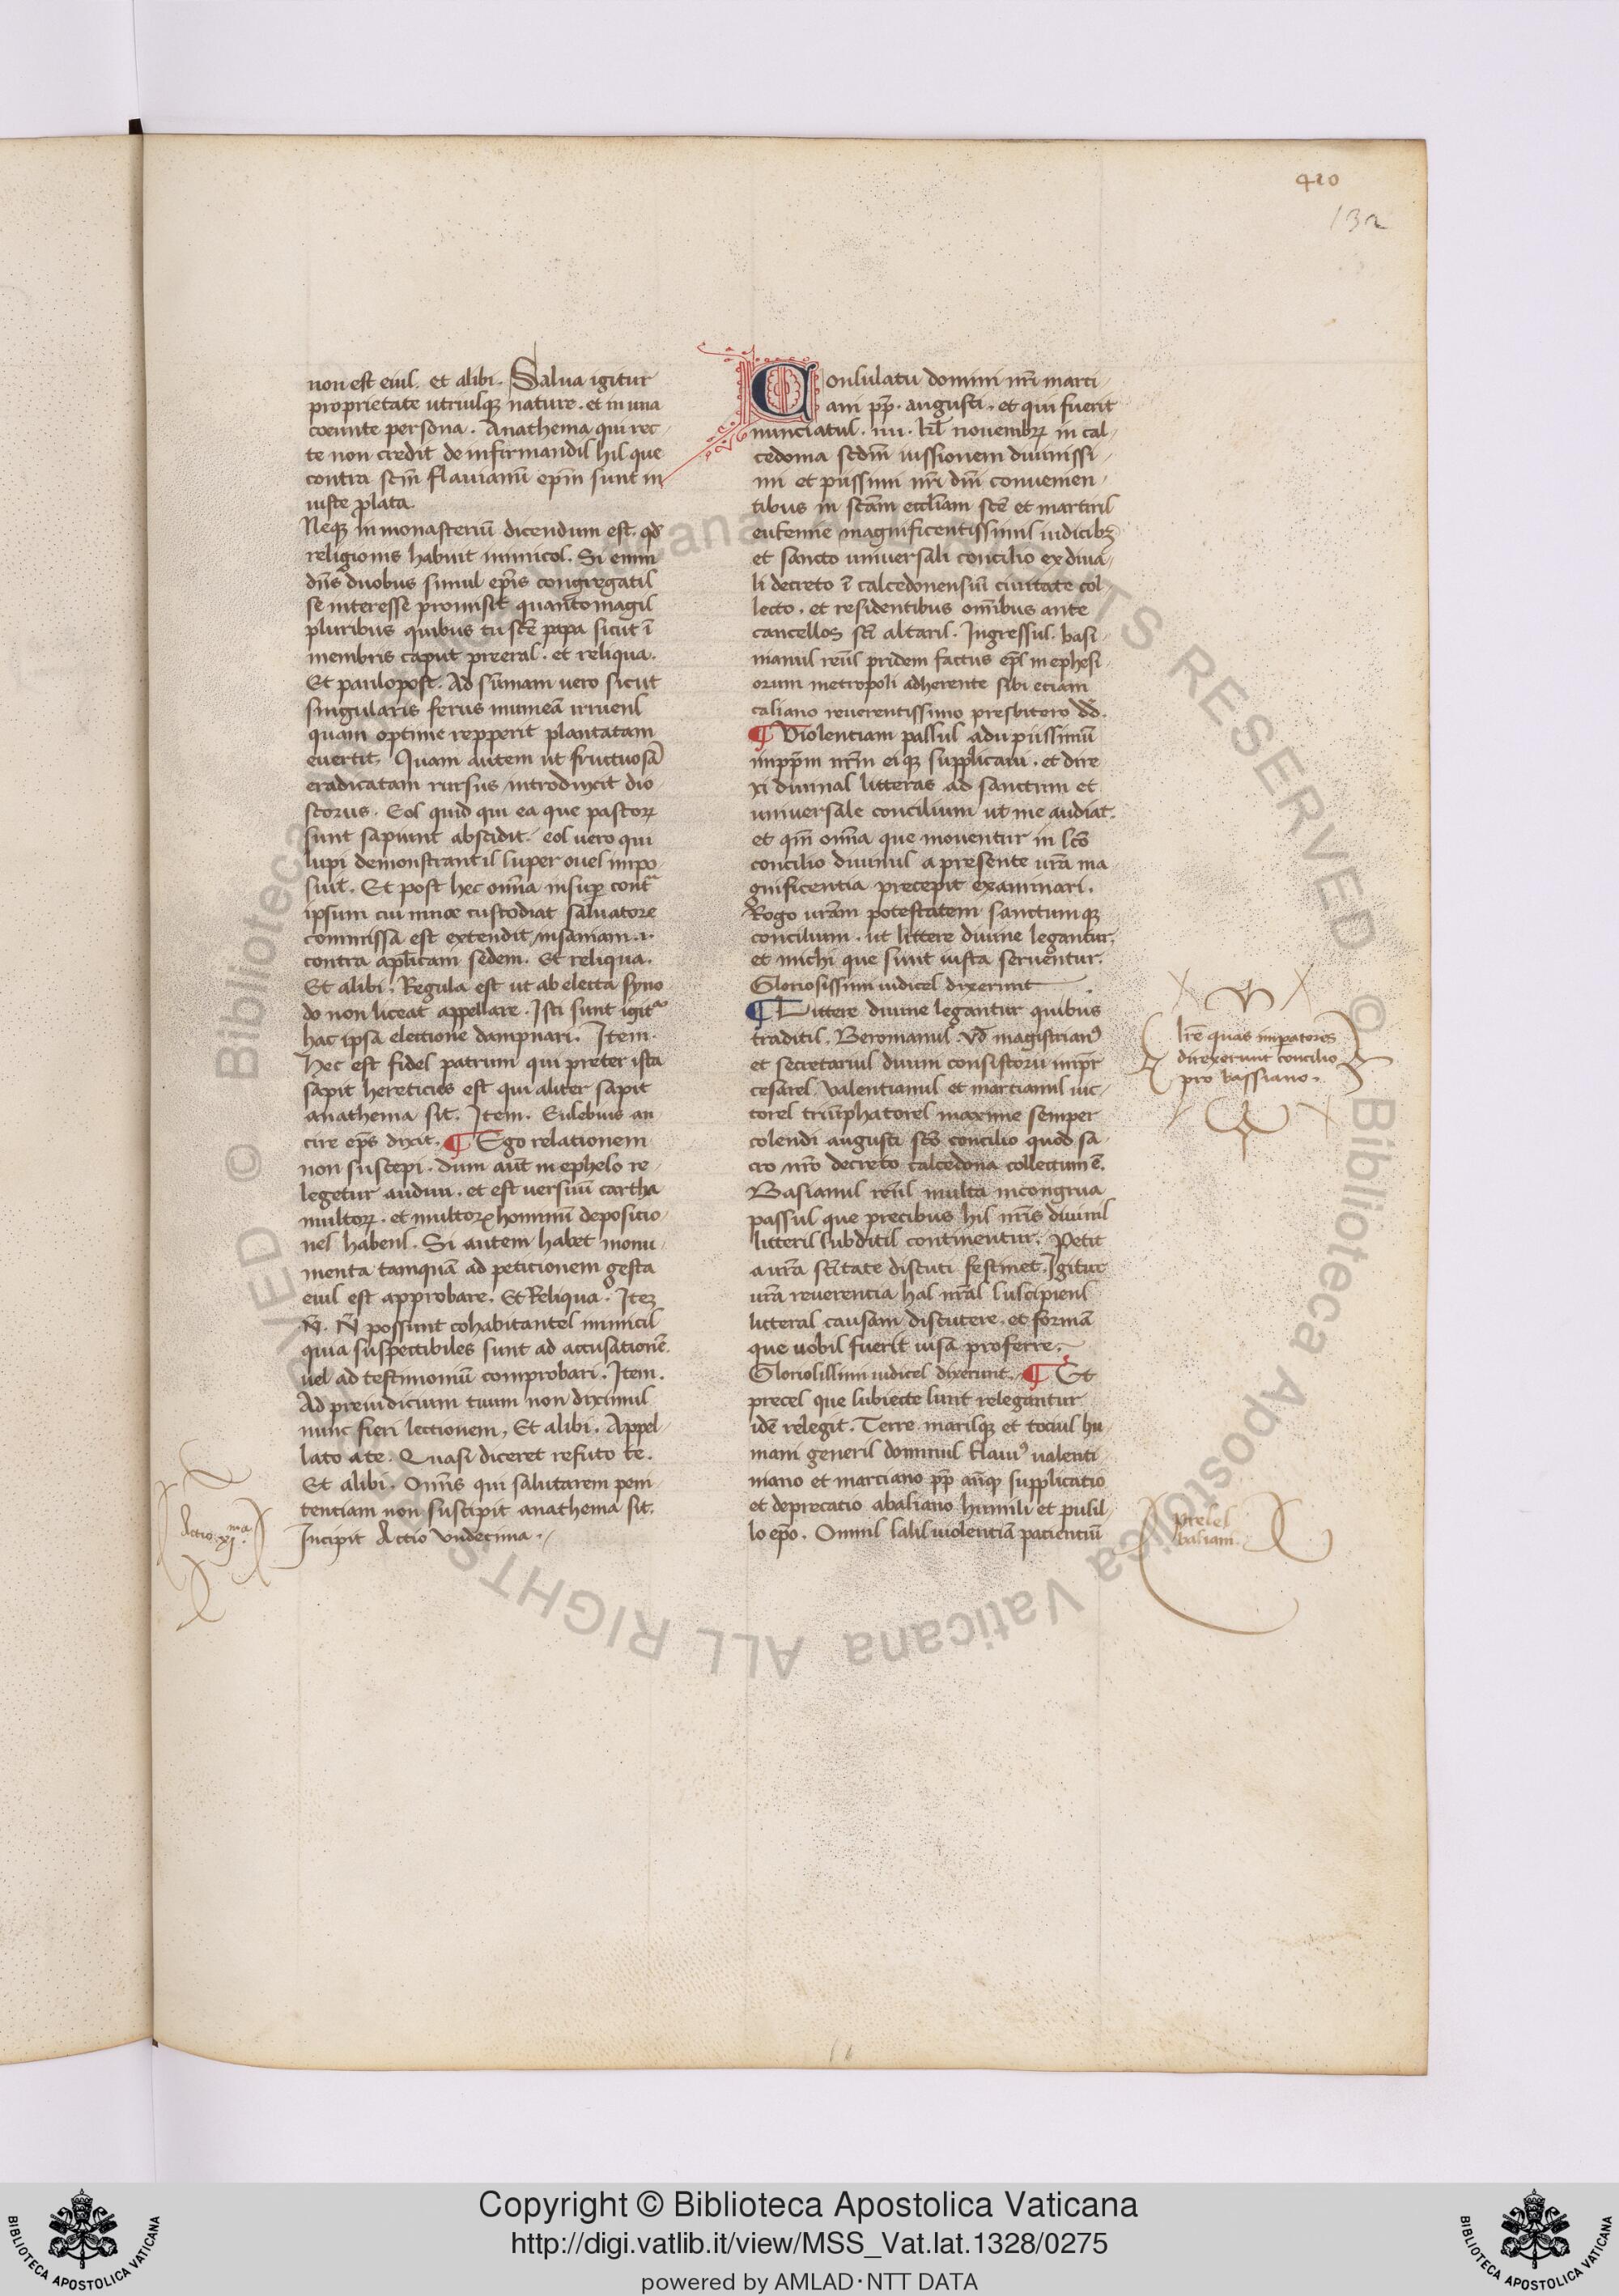 410
132
non est eius. et alibi. Salua igitur
proprietate utriusqꝫ nature. et in una
coeunte persona. Anathema qui rec-
te non credit de infirmandis his que
contra sc̄m flauianū ep̄m sunt in
iuste ꝓlata.
Neqꝫ in monasteriū dicendum est. qd̛
religionis habuit inimicos. Si enim
dn̄s duobus simul ep̄is congregatis
se interesse promisit quantomagis
pluribus quibus tu sc̄e papa sicut ī
membris caput preeras. et reliqua.
Et paulopost. Ad sūmam uero sicut
singularis ferus in uineā irruens
quam optime repperit plantatam
euertit. Quam autem ut fructuosā
eradicatam rursus introduxit dio-
scorus. Eos quid qui ea que pastoꝝ
sunt sapiunt abscidit. eos uero qui
lupi demonstrantis super oues impo-
suit. Et post hec om̄ia insuꝑ contᵃ
ipsum cui uinee custodiat saluatore
commissa est extendit insaniam .i.
contra ap̄licam sedem. Et reliqua.
Et alibi. Regula est ut ab electa syno
do non liceat appellare. Isti sunt igit᷑
hac ipsa electione dampnari. Item.
Hec est fides patrum qui preter ista
sapit hereticus est qui aliter sapit
anathema sit. Item. Eusebius an-
cire ep̄s dixit. ¶ Ego relationem
non suscepi. dum aūt in epheso re-
legetur audiui. et est uersuū cartha
multoꝝ. et multoꝝ hominū depositio-
nes habens. Si autem habet monu-
menta tamquā ad peticionem gesta
eius est approbare. Et Reliqua. Iteꝫ
N̄. N̄ possunt cohabitantes inimicis
quia suspectibiles sunt ad accusationē.
uel ad testimoniū comprobari. Item.
Ad preiudicium tuum non diximus
nunc fieri lectionem, Et alibi. Appel-
lato a te. Quasi diceret refuto te.
Et alibi. Om̄is qui salutarem peni-
tenciam non suscipit anathema sit.
Incipit Actio Vndecima.
Actio xjᵐᵃ.
Consulatu domini nr̄i marci-
ani pp̄. augusti. et qui fuerit
nunciatus. iiii. kl̄ nouembꝝ in cal-
cedonia sedm̄ iussionem diuinissi-
mi et piissimi nr̄i dn̄i conuenien-
tibus in sc̄am eccl̄iam sc̄e et martiris
eufemie magnificentissimis iudicibꝫ
et sancto uniuersali concilio ex diua-
li decreto ī calcedonensiū ciuitate col
lecto. et residentibus om̄ibus ante
cancellos sc̄i altaris. Ingressus. basi-
manus reūs pridem factus ep̄s in ephesi-
orum metropoli adherente sibi etiam
casiano reuerentissimo presbitero dd̄.
¶ Violentiam passus adii piissimū
impp̄m nr̄m eiqꝫ supplicaui. et dire-
xi diuinas litteras ad sanctum et
uniuersale concilium ut me audiat.
et qm̄ om̄ia que mouentur in sc̄o
concilio diuinus a presente ur̄a ma-
gnificentia precepit examinari.
Rogo ur̄am potestatem sanctumqꝫ
concilium. ut littere diuine legantur.
et michi que sunt iusta seruentur.
Gloriosissimi iudices dixerunt
¶ Littere diuine legantur quibus
traditis. Beromanus. vd̄ magistrianꝰ
et secretarius diuini consistorii imp̄r
cesares valentianus et marcianus uic-
tores triūphatores maxime semper
colendi augusti sc̄o concilio quod sa-
cro nr̄o decreto calcedona collectum ē.
Basianus reūs multa incongrua
passus que precibus his nr̄is diuinis
litteris subditis continentur. Petit
a ur̄a sc̄itate discuti festinet. Igitur
ur̄a reuerentia has nr̄as suscipiens
litteras causam discutere. et formā
que uobis fuerit uisa proferre.
Gloriosissimi iudices dixerunt. ¶ Et
preces que subiecte sunt relegantur
idē relegit. Terre. marisqꝫ et tocius hu-
mani generis dominus flauiꝰ ualenti-
niano et marciano pp̄ aūgꝫ supplicatio
et deprecatio abasiano humili et pusil-
lo ep̄o. Omnis salus uiolentiā pacientiū
lr̄e quas imꝑatores
direxerunt concilio
pro bassiano.
preces
basiani.
Copyright © Biblioteca Apostolica Vaticana
http://digi.vatlib.it/view/MSS_Vat.lat.1328/0275
powered by AMLAD·NTT DATA
BIBLIOTECA APOSTOLICA VATICANA
BIBLIOTECA APOSTOLICA VATICANA
© Biblioteca Apostolica Vaticana ALL RIGHTS RESERVED